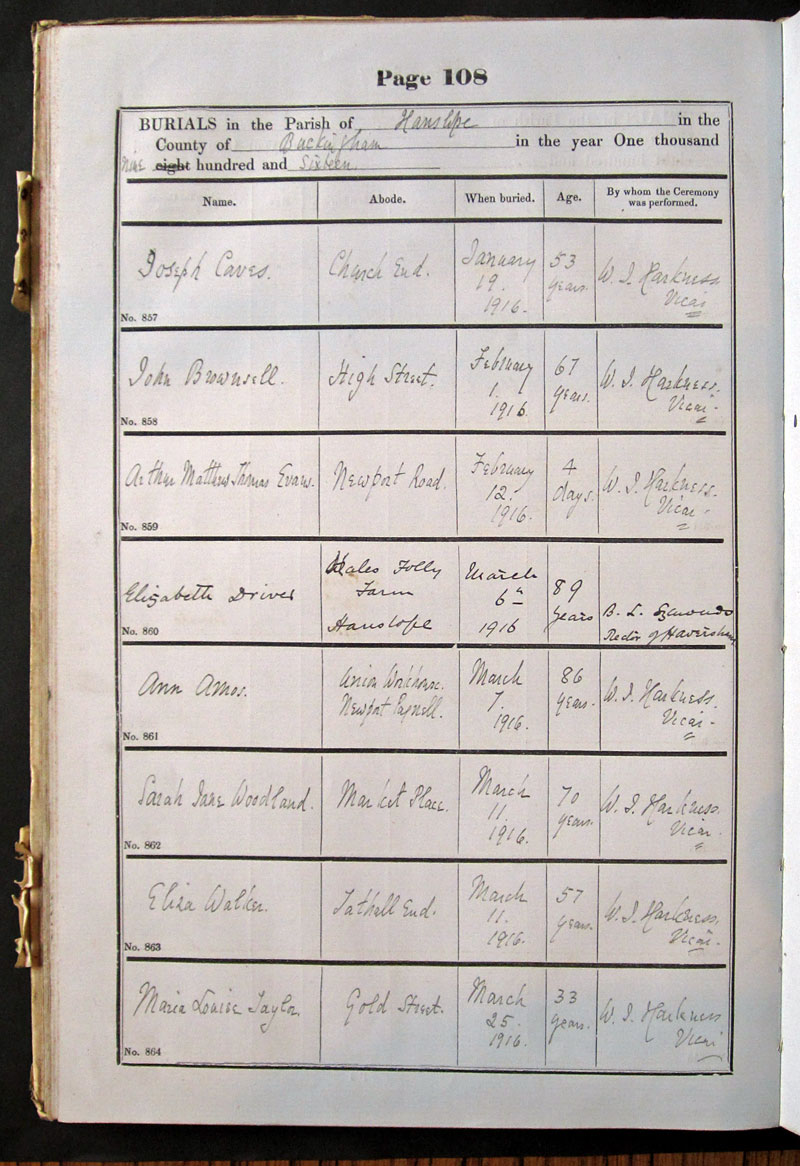 Page 108
BURIALS in the Parish of Hanslope in the
County of Buckingham in the year One thousand
nine eight hundred and Sixteen
Name. Abode. When buried. Age. By whom the Ceremony was performed.
Joseph Caves. Church End. January 19. 1916. 53 years. W. J. Harkness Vicar
No. 857
John Brownsell. High Street. February 1. 1916. 67 years. W. J. Harkness. Vicar.
No. 858
Arthur Matthew Thomas Evans. Newport Road. February 12. 1916. 4 days. W. J. Harkness. Vicar.
No. 859
Elizabeth Driver Hales Folly Farm Hanslope March 6th 1916 89 years B. L. Rector of Haversham
No. 860
Ann Amos. Union Workhouse. Newport Pagnell. March 7. 1916. 86 years. W. J. Harkness. Vicar.
No. 861
Sarah Jane Woodland. Market Place. March 11. 1916. 70 years. W. J. Harkness. Vicar.
No. 862
Eliza Walker. Tathall End. March 11. 1916. 57 years. W. J. Harkness. Vicar.
No. 863
Maria Louise Taylor. Gold Street. March 25. 1916. 33 years. W. J. Harkness Vicar
No. 864